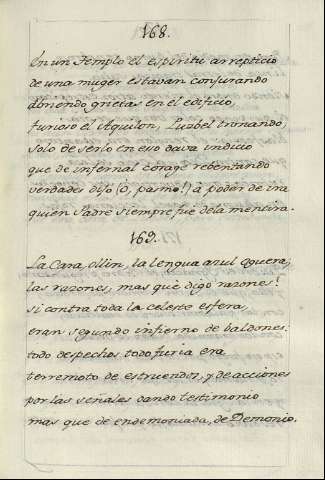 168.
En un Templo el espiritu arrepticio
de una muger estavan conjurando
abriendo grietas en el edificio,
furioso el Aquilon, Luzbel tronando,
solo de serlo en eso dava indicio
que de infernal corage rebentando
verdades dijo (ó, pasmo!) á poder de ira
quien Padre siempre fue dela mentira.
169.
La Cara ollin, la lengua azul
las razones, mas què digo razones!
si contra toda la celeste esfera,
eran segundo infierno de baldones:
todo despechos, todo furia era
terremoto de estruendos, y de acciones
por las señales dando testimonio
mas que de endemoniada, de Demonio.